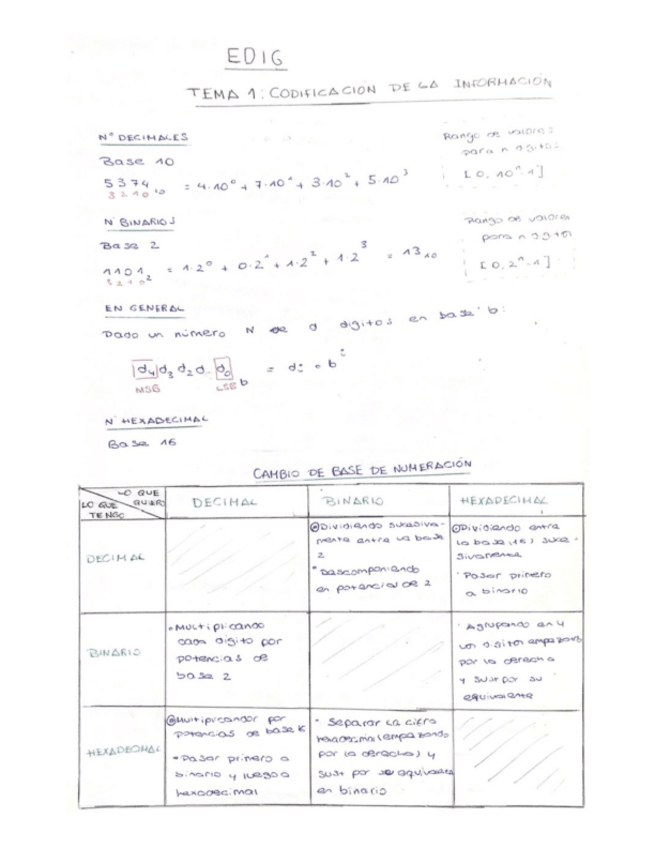 EDIG
TEMA 1: CODIFICACIÓN DE LA INFORMACIÓN
Nº DECIMALES
Base 10
5374₁₀ = 4·10⁰ + 7·10¹ + 3·10² + 5·10³
3 2 1 0
Rango de valores
para n dígitos
[0, 10ⁿ-1]
Nº BINARIOS
Base 2
1101₂ = 1·2⁰ + 0·2¹ + 1·2² + 1·2³ = 13₁₀
3 2 1 0
Rango de valores
para n dígitos
[0, 2ⁿ-1]
EN GENERAL
Dado un número N de d dígitos en base b:
d₄ d₃ d₂ d₁ d₀ b = dᵢ · bⁱ
MSB LSB
Nº HEXADECIMAL
Base 16
CAMBIO DE BASE DE NUMERACIÓN
LO QUE QUIERO
LO QUE TENGO
DECIMAL
BINARIO
HEXADECIMAL
DECIMAL
Dividiendo sucesiva-
mente entre la base
2
• Descomponiendo
en potencias de 2
Dividiendo entre
la base (16) suce-
sivamente
· Pasar primero
a binario
BINARIO
• Multiplicando
cada dígito por
potencias de
base 2
· Agrupando en 4
los dígitos empezando
por la derecha
y sust por su
equivalente
HEXADECIMAL
Multiplicandor por
potencias de base 16
• Pasar primero a
binario y luego a
hexadecimal
· Separar la cifra
hexadecimal (empezando
por la derecha) y
sust por su equivalente
en binario